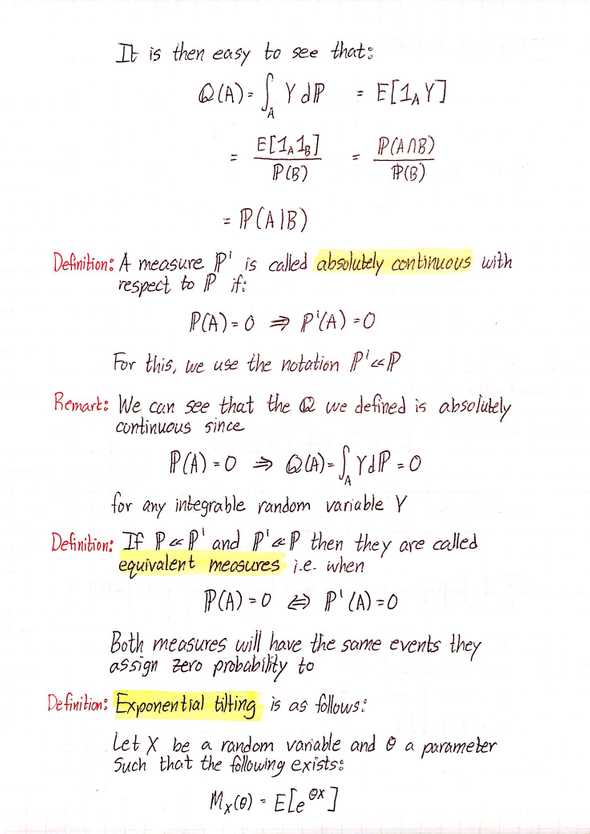 It is then easy to see that:
Q(A) = ∫_A Y dℙ = E[1_A Y]
= E[1_A 1_B] / ℙ(B) = ℙ(A∩B) / ℙ(B)
= ℙ(A|B)
Definition: A measure ℙ' is called absolutely continuous with
respect to ℙ if:
ℙ(A) = 0 ⇒ ℙ'(A) = 0
For this, we use the notation ℙ' ≪ ℙ
Remark: We can see that the Q we defined is absolutely
continuous since
ℙ(A) = 0 ⇒ Q(A) = ∫_A Y dℙ = 0
for any integrable random variable Y
Definition: If ℙ ≪ ℙ' and ℙ' ≪ ℙ then they are called
equivalent measures i.e. when
ℙ(A) = 0 ⇔ ℙ'(A) = 0
Both measures will have the same events they
assign zero probability to
Definition: Exponential tilting is as follows:
Let X be a random variable and θ a parameter
Such that the following exists:
M_X(θ) = E[e^{θX}]